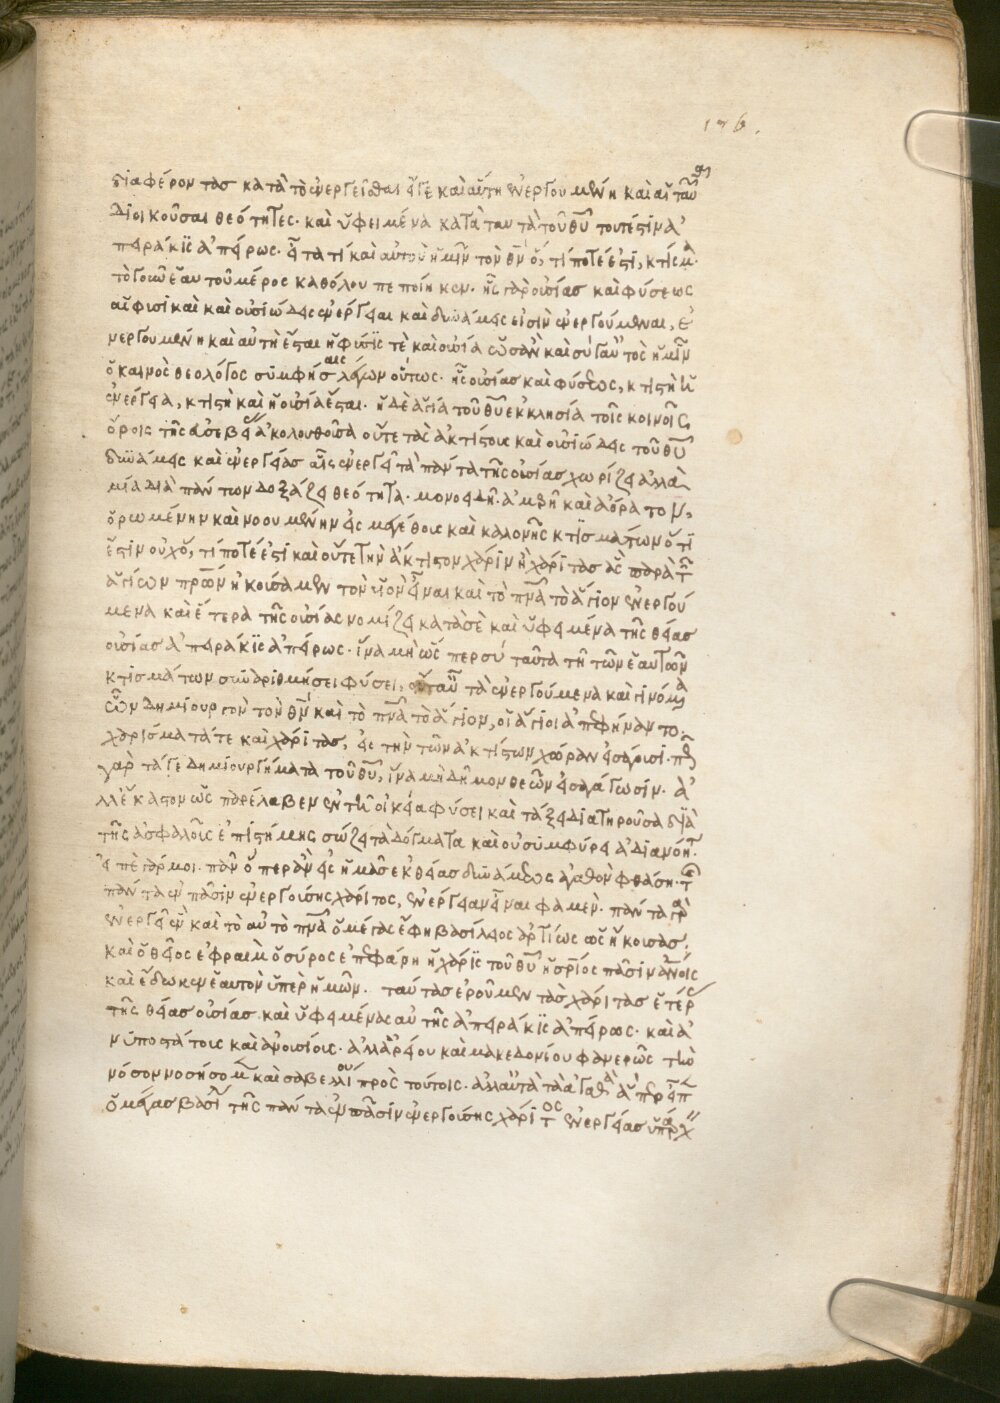 176.
διαφέροντας κατὰ τὸ ἐνεργεῖσθαι εἴγε καὶ αὕτη ἐνεργουμένη καὶ αἱ ταύτῃ
διοικοῦσαι θεότητες. καὶ ὑφειμένα κατὰ τὰ τοῦ θυ τουτέστιν ἀ
πειράκις ἀπείρως. εἶτα τί καὶ αὐτὸν ἡμῖν τὸν θν ὅ, τί ποτέ ἐστι, κτίσμα.
τὸ γοῦν ἑαυτοῦ μέρος καθόλου πεποίηκεν. ἧς γὰρ οὐσίας καὶ φύσεως
αἱ φυσικαὶ καὶ οὐσιώδεις ἐνέργειαι καὶ δυνάμεις εἰσὶν ἐνεργούμεναι, ἐ
νεργουμένη καὶ αὐτὴ ἔσται ἡ φύσις τὲ καὶ οὐσία
ὁ καινὸς θεολόγος συμφήσαις λέγων οὕτως. ἧς οὐσίας καὶ φύσεως, κτιστὴ ἡ
ἐνέργεια, κτιστὴ καὶ ἡ οὐσία ἔσται. ἡ δὲ ἁγία τοῦ θυ ἐκκλησία τοῖς κοινοῖς
ὅροις τῆς εὐσεβείας ἀκολουθοῦσα οὔτε τὰς ἀκτίστους καὶ οὐσιώδεις τοῦ θυ
δυνάμεις καὶ ἐνεργείας αἷς ἐνεργεῖ τὰ πάντα τῆς οὐσίας χωρίζει ἀλλὰ
μία διὰ πάντων δοξάζει θεότητα. μονοειδῆ. ἀμερῆ καὶ ἀόρατον,
ὁρωμένην καὶ νοουμένην ἐκ μεγέθους καὶ καλονῆς κτισμάτων ὅτί
ἐστιν οὐχ ὅ, τί ποτέ ἐστι καὶ οὔτε τὴν ἄκτιστον χάριν ἢ χάριτας ἃς παρὰ τῶν
ἁγίων πρώην ἠκούσαμεν τὸν υἱὸν εἶναι καὶ τὸ πνα τὸ ἅγιον ἐνεργού
μενα καὶ ἕτερα τῆς οὐσίας νομίζει κατὰ σὲ καὶ ὑφειμένα τῆς θείας
οὐσίας ἀπειράκις ἀπείρως. ἵνα μὴ ὡς περ σύ ταῦτα τῇ τῶν ἑαυτῶν
κτισμάτων συναριθμήσει φύσει, τὰ ἐνεργούμενα καὶ γινόμενα
ὧν δημιουργὸν τὸν θν καὶ τὸ πνα τὸ ἅγιον, οἱ ἅγιοι ἀπεφήναντο.
χαρίσματά τε καὶ χάριτας, εἰς τὴν τῶν ἀκτίστων χώραν εἰσάγουσι.
γαρ τάγε δημιουργήματα τοῦ θυ, ἵνα μὴ δῆμον θεῶν εἰσαγάγωσιν. ἀ
λλ' ἕκαστον ὡς παρέλαβεν ἐν τῇ οἰκεία φύσει καὶ τάξει διατηροῦσα διὰ
τῆς ἀσφαλοῦς ἐπιστήμης σώζει τὰ δόγματα καὶ οὐ συμφύρει ἀδιανόητα.
εἰπὲ γάρ μοι. πᾶν ὅπερ ἂν εἰς ἡμᾶς ἐκ θείας δυνάμεως ἀγαθὸν φθάση. τῆς
πάντα ἐν πᾶσιν ἐνεργούσης χάριτος, ἐνέργειαν εἶναι φαμέν. πάντα γὰρ
ἐνεργεῖ ἓν καὶ τὸ αὐτὸ πνα ὁ μέγας ἔφη βασίλειος ἀρτίως ὡς ἤκουσας.
καὶ ὁ θεῖος ἐφραὶμ ὁ σύρος ἐπεφάνη ἡ χάρις τοῦ θυ ἡ σριος πᾶσιν ανοις
καὶ ἔδωκεν ἑαυτὸν ὑπὲρ ἡμῶν. ταύτας ἐροῦμεν τὰς χάριτας ἑτέρας
τῆς θείας οὐσίας καὶ ὑφειμένας αὐτῆς ἀπειράκις ἀπείρως. καὶ ἀ
νυποστάτους καὶ ἀνουσίους. ἀλλ' ἀρείου καὶ μακεδονίου φανερῶς τὴν
νόσον νοσήσομεν καὶ σαβελλίου πρὸς τούτοις. ἀλλ' αὐτὰ τὰ ἀγαθὰ ἅπερ εἶπεν
ὁ μέγας βασίλειος τῆς πάντα ἐν πᾶσιν ἐνεργούσης χάριτος ἐνεργείας ὑπάρχειν